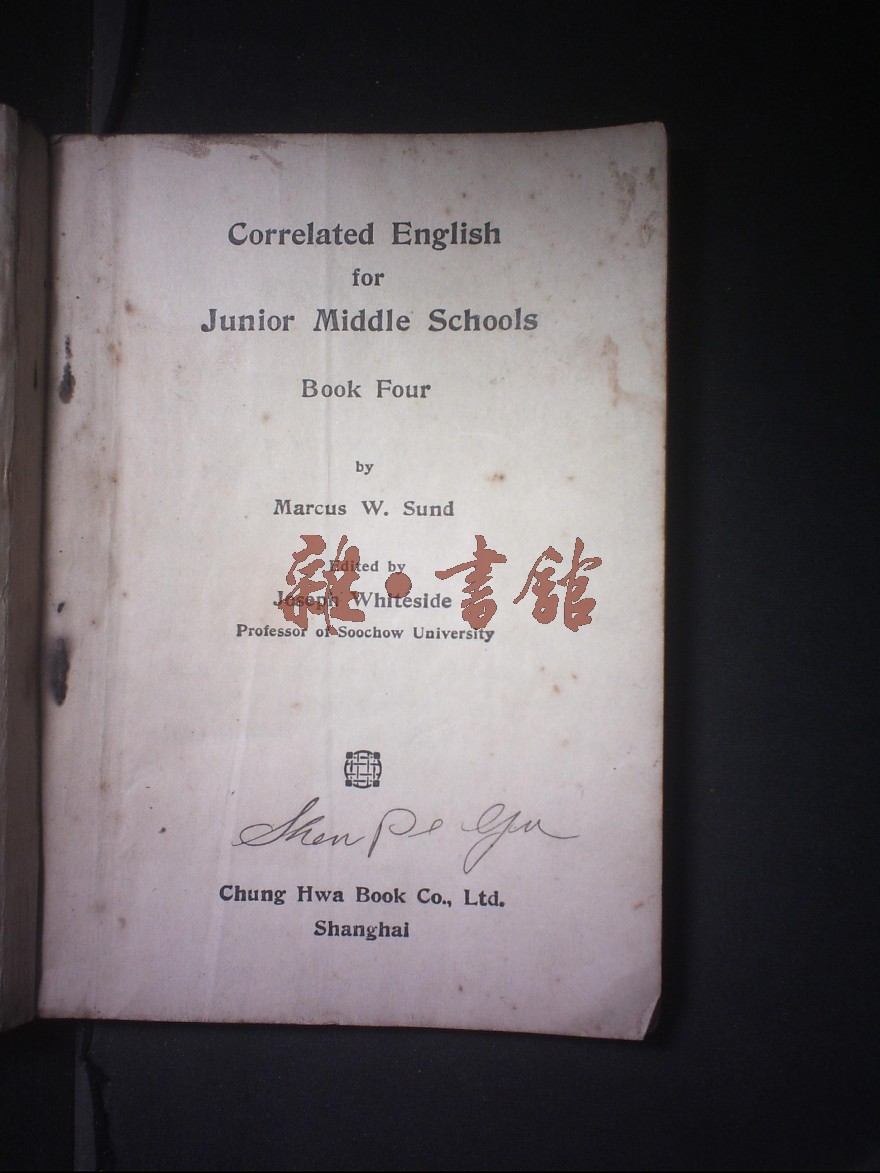 Correlated English
for
Junior Middle Schools
Book Four
by
Marcus W. Sund
Edited by
雜·書館
Joseph Whiteside
Professor of Soochow University
Shen Pe Yu
Chung Hwa Book Co., Ltd.
Shanghai